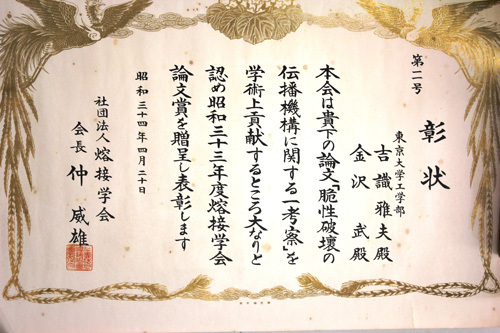 第二号
彰状
東京大学工学部
吉識雅夫殿
金沢武殿
本会は貴下の論文「脆性破壊の
伝播機構に関する一考察」を
学術上貢献するところ大なりと
認め昭和三十三年度熔接学会
論文賞を贈呈し表彰します
昭和三十四年四月二十日
社団法人熔接学会
会長仲威雄